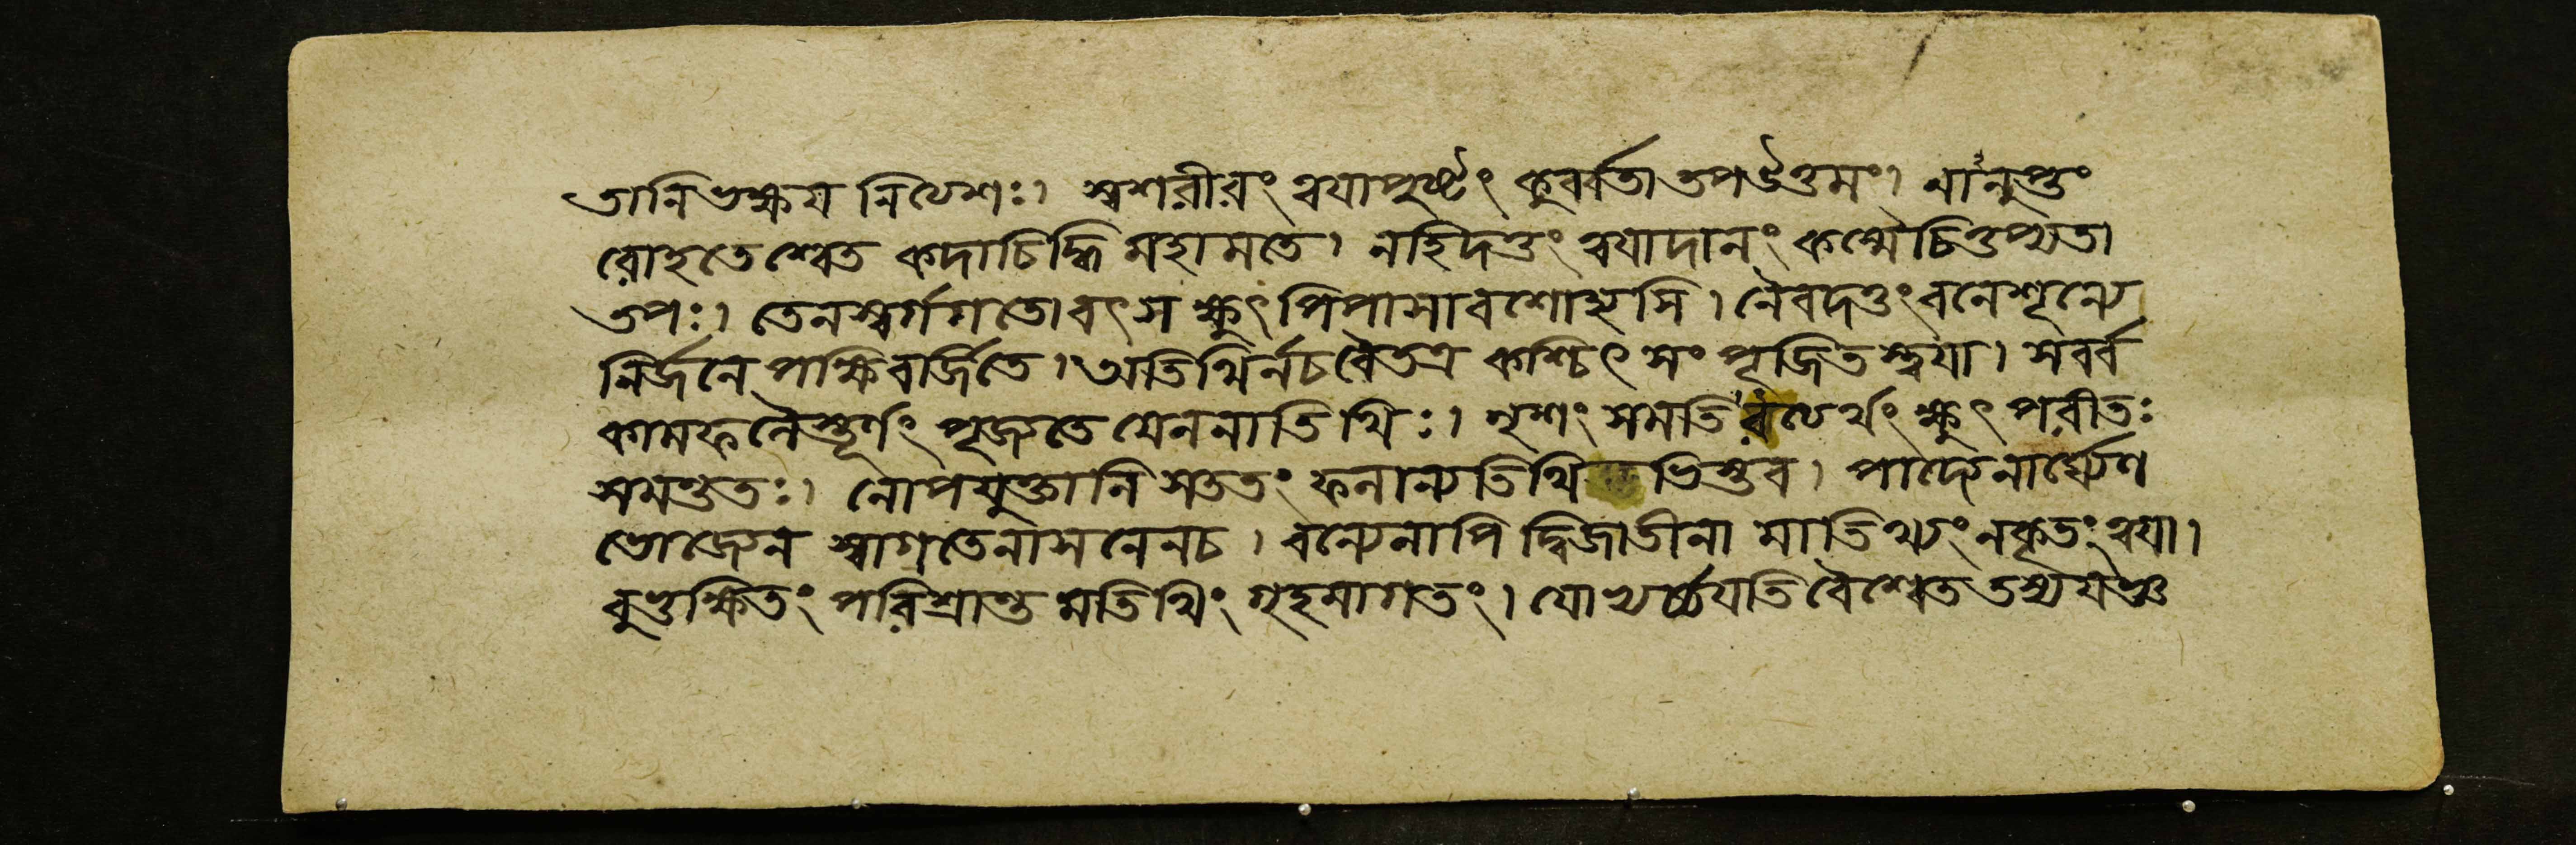 তানিভক্ষয় নিত্যশঃ। স্বশরীরং ত্বয়াপুষ্টং কুবর্ব্বতা তপউত্তমং। নানুপ্তং
রোহতে শ্বেত কদাচিদ্ধি মহামতে। নহিদত্তং ত্বয়াদানং কস্মৈচিত্তপ্যতা
তপঃ। তেনস্বর্গগতো বৎস ক্ষুৎপিপাসাবশোহ্যসি। নৈবদত্তং বনেশূন্যে
নির্জনে পক্ষিবর্জিতে। অতিথির্নচ বৈতত্র কশ্চিৎ সংপূজিতস্ত্বয়া। সবর্ব
কামফলৈস্তূর্ণং পূজ্যতে যেননাতিথিঃ। নৃশং সমতি র্থং ক্ষুৎপরীতঃ
সমন্ততঃ। নোপযুক্তানি সততং ফলান্যতিথি ভিস্তব। পাদ্যেনার্ঘ্যেণ
ভোজ্যেন স্বাগতেনাসনেনচ। বন্যেনাপি দ্বিজাতীনা মাতিথ্যং নকৃতং ত্বয়া।
বুভুক্ষিতং পরিশ্রান্ত মতিথিং গৃহমাগতং। যোহ্যর্চ্চয়তি বৈশ্বেত তস্য যজ্ঞ